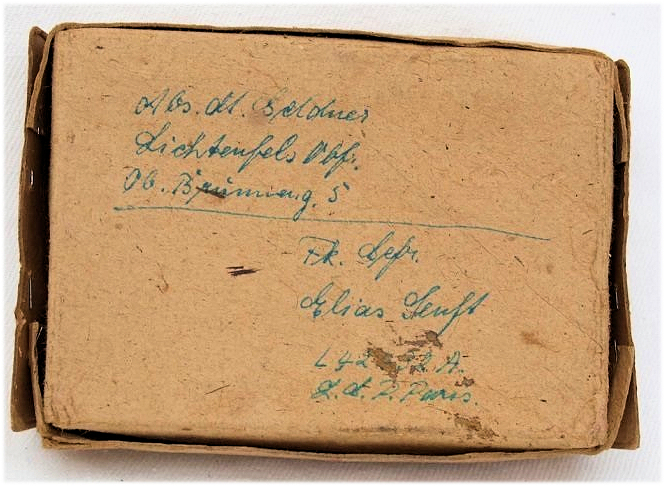 Abs. M. Geldner
Lichtenfels Obfr.
Ob. Brunneng. 5
Fk. Gefr.
Elias Senft
L 42
L.G.P. Paris.